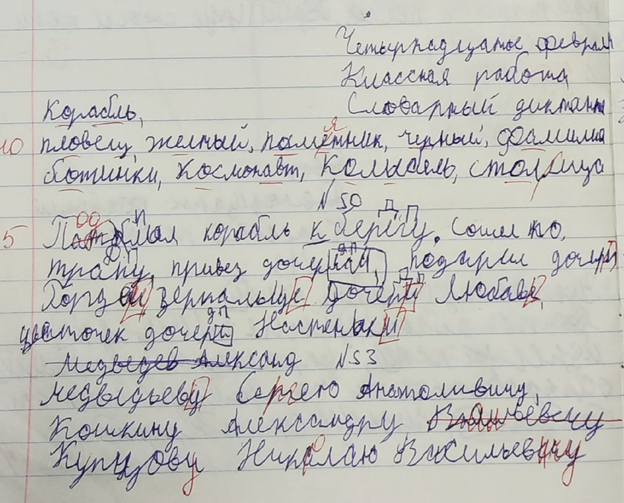 Четырнадцатое феврал
Классная работа
Корабль, Словарный диктант
пловец, желтый, памятник, черный, фамилия
ботинки, космонавт, колыбель, столица
N 50 Д.П.
5 корабль к берегу. Сошел по
трапу, привез дочерям, подарки дочери
зеркальце, дочери Любаве,
цветочек дочери Настеньки
Медведев Александ N 53
Медведьеву Сергею Анатоливичу,
Кошкину Александру
Купцову Николаю Васильевичу